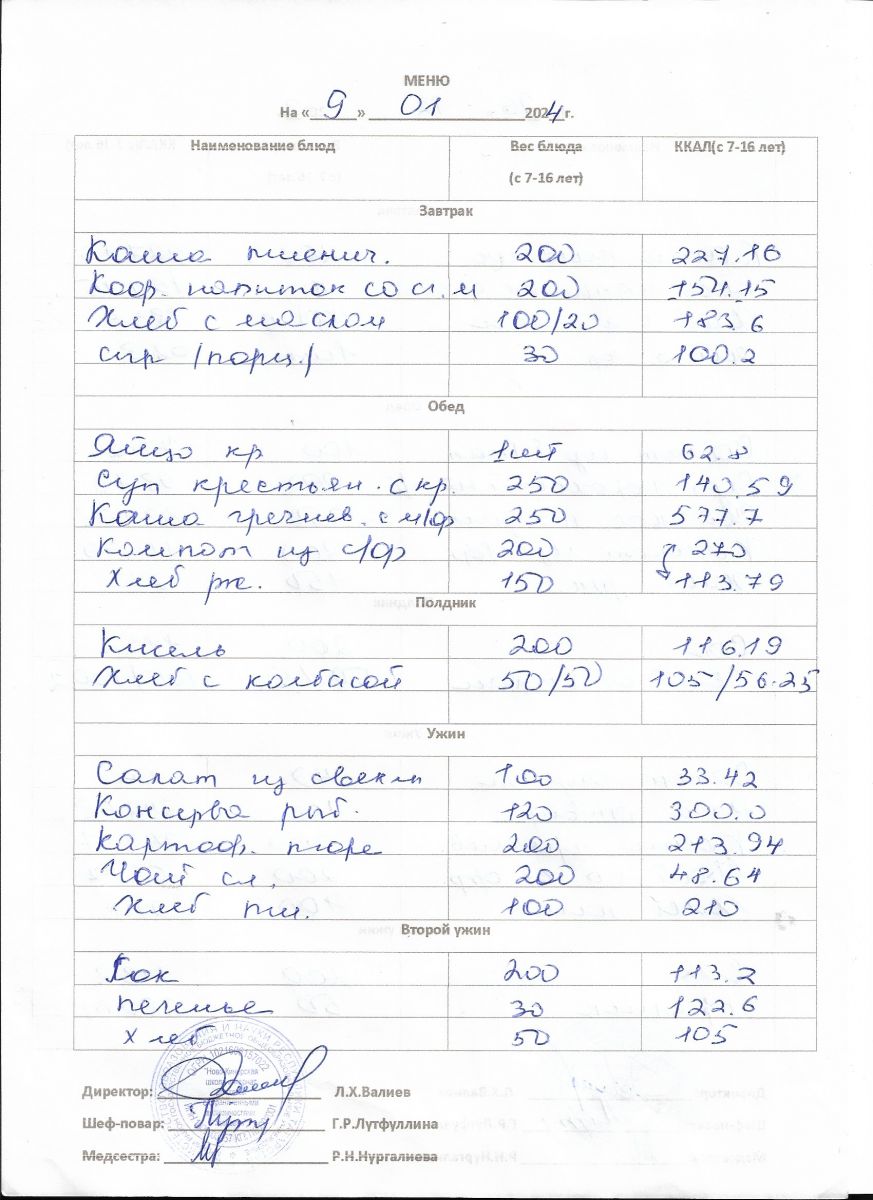 МЕНЮ
На « 9 » 01 2024 г.
Наименование блюд Вес блюда (с 7-16 лет) ККАЛ(с 7-16 лет)
Завтрак
Каша пшенич. 200 227.16
Коф. напиток со сг.м 200 154.15
Хлеб с маслом 100/20 183.6
сыр /порц./ 30 100.2
Обед
Яйцо кр 1шт 62.8
Суп крестьян. с кр. 250 140.59
Каша гречнев. с м/ф 250 577.7
Компот из с/ф 200 270
Хлеб рж. 150 113.79
Полдник
Кисель 200 116.19
Хлеб с колбасой 50/50 105/56.25
Ужин
Салат из свеклы 100 33.42
Консерва рыб. 120 300.0
Картоф. пюре 200 213.94
Чай сл. 200 48.64
Хлеб пш. 100 210
Второй ужин
Сок 200 113.2
печенье 30 122.6
хлеб 50 105
Директор: Л.Х.Валиев
Шеф-повар: Г.Р.Лутфуллина
Медсестра: Р.Н.Нургалиева